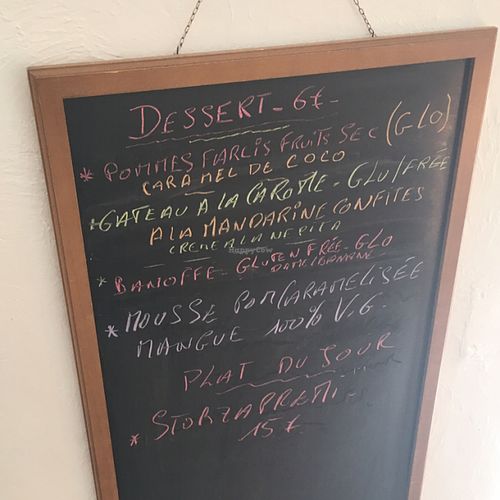 DESSERT - 6€ -
* POMMES FARCIS FRUITS SEC (GLO)
CARAMEL DE COCO
* GATEAU A LA CAROTTE - GLU/FREE
A LA MANDARINE CONFITES
CREME A LA NEPITA
* BANOFFE - GLUTEN FREE - GLO
* MOUSSE POM CARAMELISÉE
MANGUE 100% V.G.
PLAT DU JOUR
* STORZAPRETI -
15 €
HappyCow